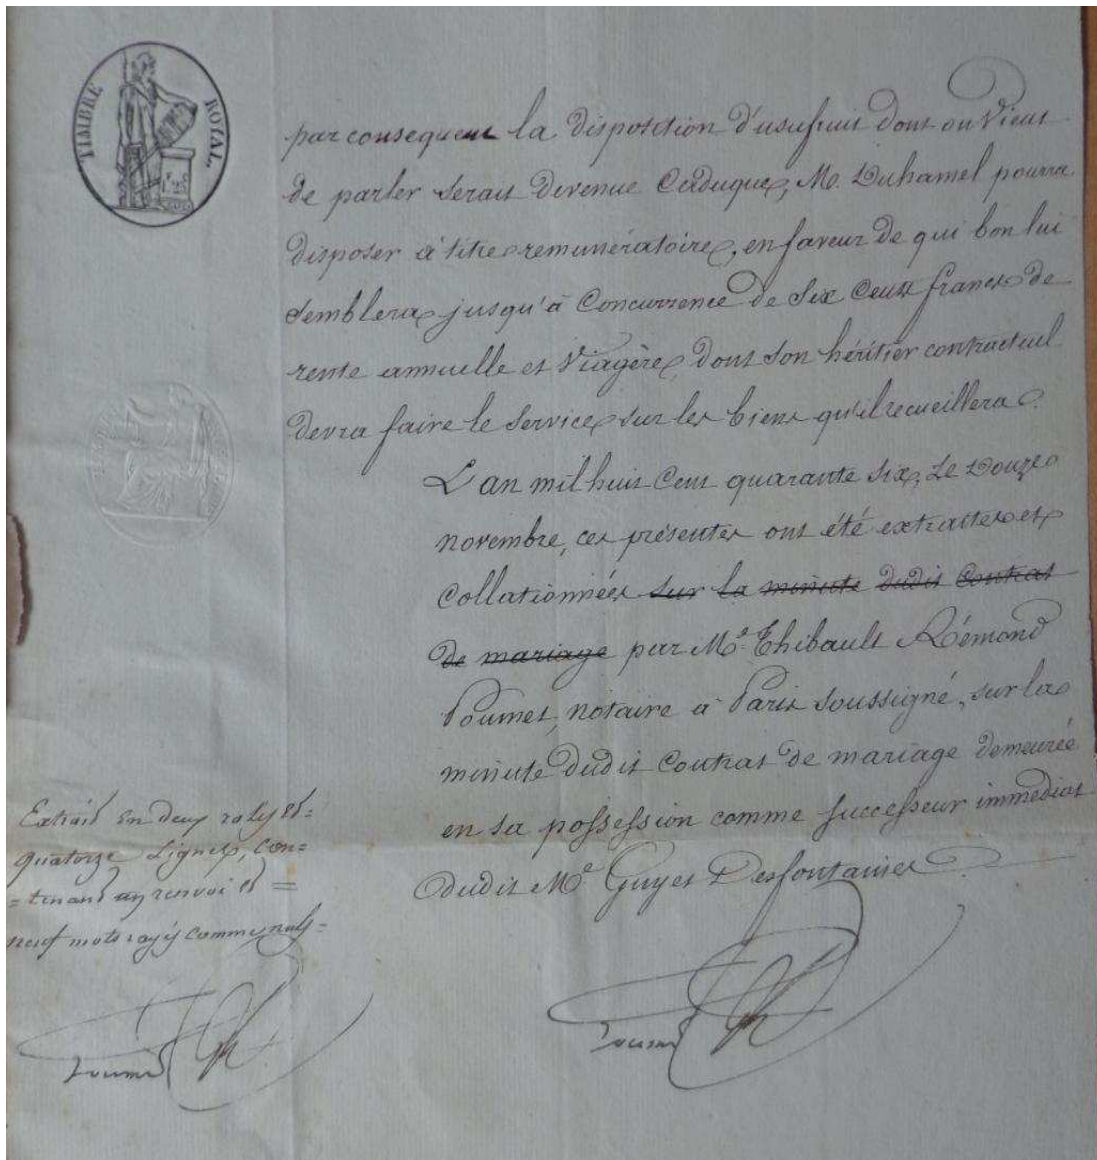 TIMBRE ROYAL.
par consequent la Disposition d'usufruit dont on Vient
de parler serait Devenue Caduque, M. Duhamel pourra
disposer à titre remunératoire, en faveur de qui bon lui
semblera jusqu'à Concurrence de Six Cents francs de
rente annuelle et Viagère, dont son héritier contractuel
devra faire le service sur les biens qu'il recueillera.
L'an mil huit Cent quarante six, Le Douze
novembre, ces présentes ont été extraites et
Collationnées sur la minute dudit Contrat
de mariage par Me. Thibault Rémond
Poumet, notaire à Paris soussigné, sur la
minute dudit Contrat de mariage demeurée
en sa possession comme successeur immediat
dudit Me Guyet Desfontaines.
Extrait en deux roles et=
quatorze Lignes, con=
=tenant un renvoi et =
neuf mots rayés comme nuls=
Poumet
Poumet